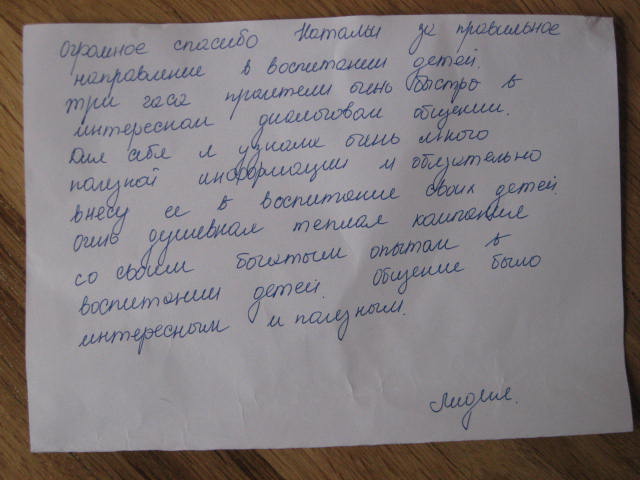 Огромное спасибо Натальи за правильное
направление в воспитании детей.
Три часа пролетели очень быстро в
интересном диалоговом общении.
Для себя я узнала очень много
полезной информации и обязательно
внесу ее в воспитание своих детей.
Очень душевная теплая компания
со своим богатым опытом в
воспитании детей. Общение было
интересным и полезным.
Лидия.